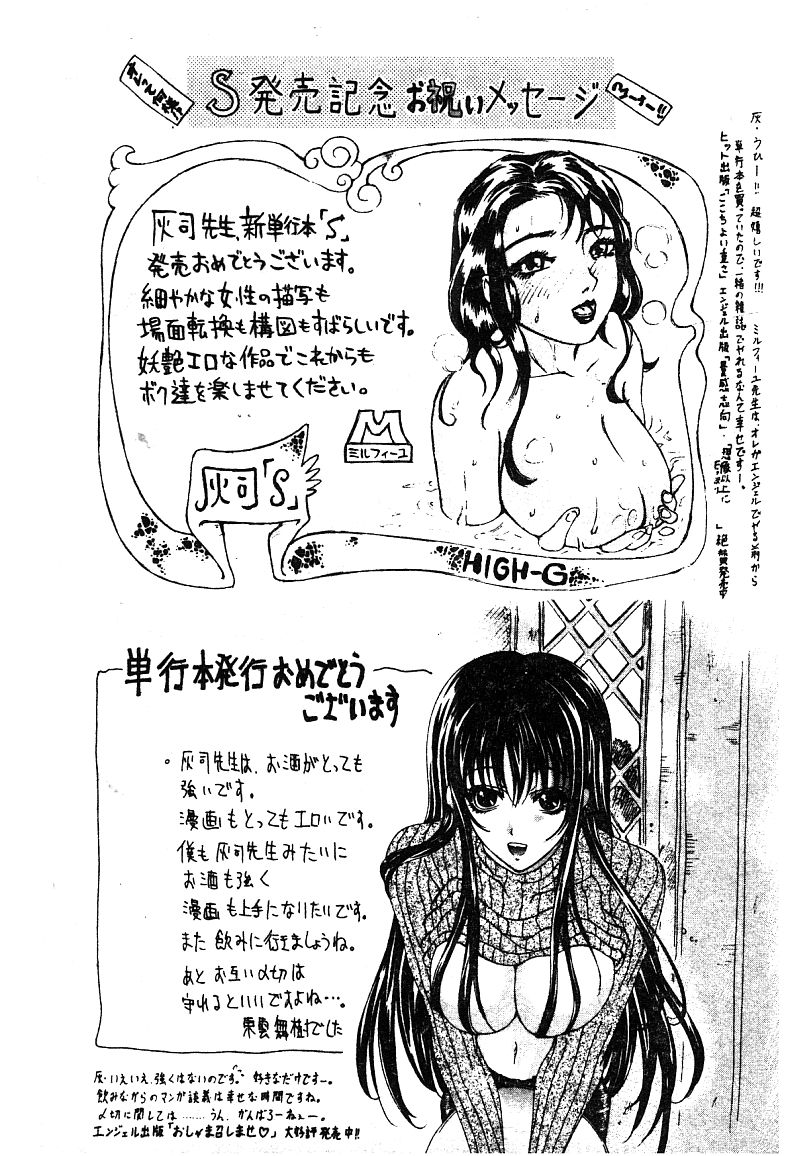 S発売記念お祝いメッセージ
灰司先生、新単行本「S」
発売おめでとうございます。
細やかな女性の描写も
場面転換も構図もすばらしいです。
妖艶エロな作品でこれからも
ボク達を楽しませてください。
M
ミルフィーユ
灰司「S」
HIGH-G
灰・うひー!!超嬉しいです!!!ミルフィーユ先生は、オレがエンジェルでやる前から
単行本を買っていたので、一緒の雑誌でやれるなんて幸せですー。
ヒット出版「ここちよい重さ」エンジェル出版「量感志向」・「想像以上に
」絶賛発売中
単行本発行おめでとう
ございます
。灰司先生は、お酒がとっても
強いです。
漫画もとってもエロいです。
僕も灰司先生みたいに
お酒も強く
漫画も上手になりたいです。
また飲みに行きましょうね。
あとお互い〆切は
守れるといいですよね…。
東雲舞樹でした
灰・いえいえ、強くはないのです。好きなだけですー。
飲みながらのマンガ談義は幸せな時間ですね。
〆切に関しては………うん、がんばろーねぇー。
エンジェル出版「おしゃま召しませ♡」大好評発売中!!